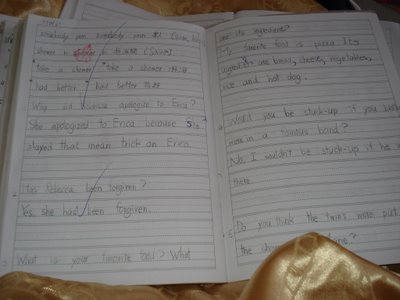 somebody pen somebody pen
shower in
take a shower take a shower
had better had better
Why did Rebecca apologize to Erica?
She apologized to Erica because she
played that mean trick on Erica
Has Rebecca been forgiven?
Yes, she has been forgiven.
What is your favorite food? What
are its ingredient?
My favorite food is pizza Its
ingredients are bread, cheese, vegetables,
rice and hot dog.
Would you be stuck-up if you
were in a famous band?
No, I wouldn't be stuck-up if
there.
Do you think the twins were put
the